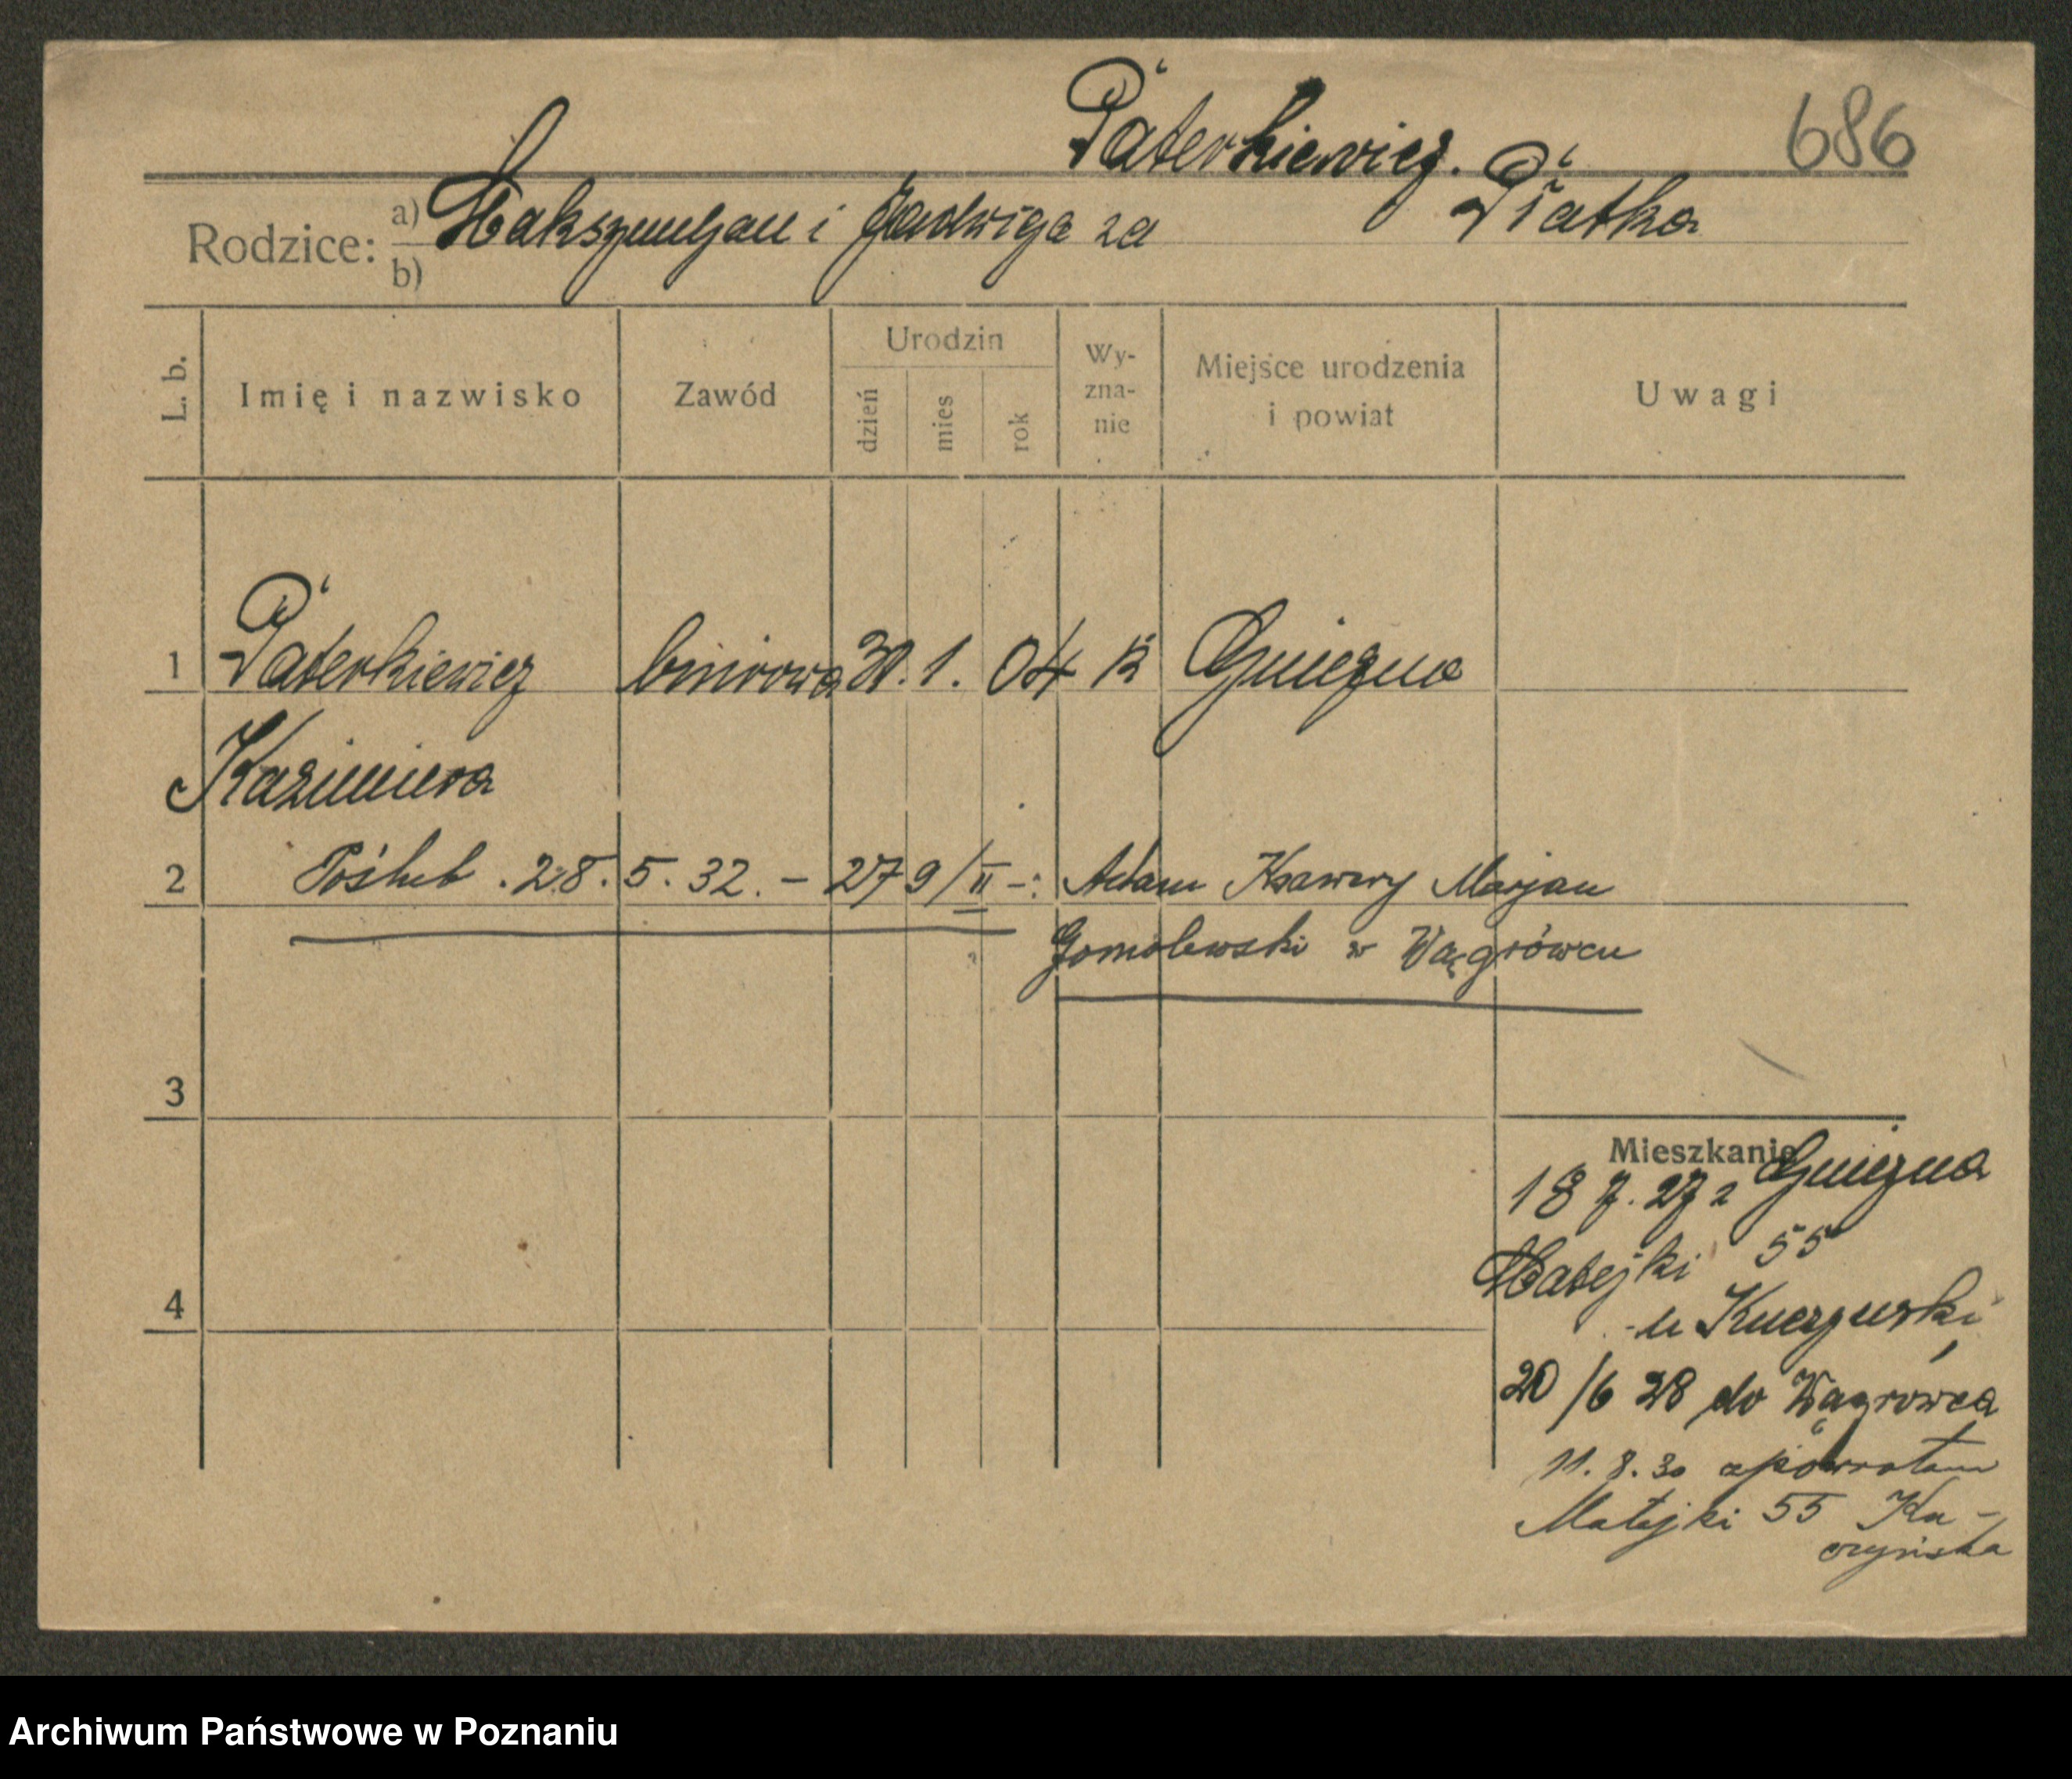 Paterkiewicz.
686
Rodzice: a) Maksymiljan i Jadwiga za Piatka
b)
L. b. Imię i nazwisko Zawód Urodzin dzień mies rok Wy-zna-nie Miejsce urodzenia i powiat Uwagi
1 Paterkiewicz biurowa 30. 1. 04 k Gniezno
Kazimiera
2 Pośłub. 28. 5. 32. – 279/II –: Adam Ksawery Marjan
Gomolewski w Wągrówcu
3
Mieszkanie
18 7. 27 z Gniezna
Matejki 55
4
u Kuczyński
20/6 28 do Wągrówca
11. 8. 30 zpowrotem
Matejki 55 Ku-
czyńska
Archiwum Państwowe w Poznaniu